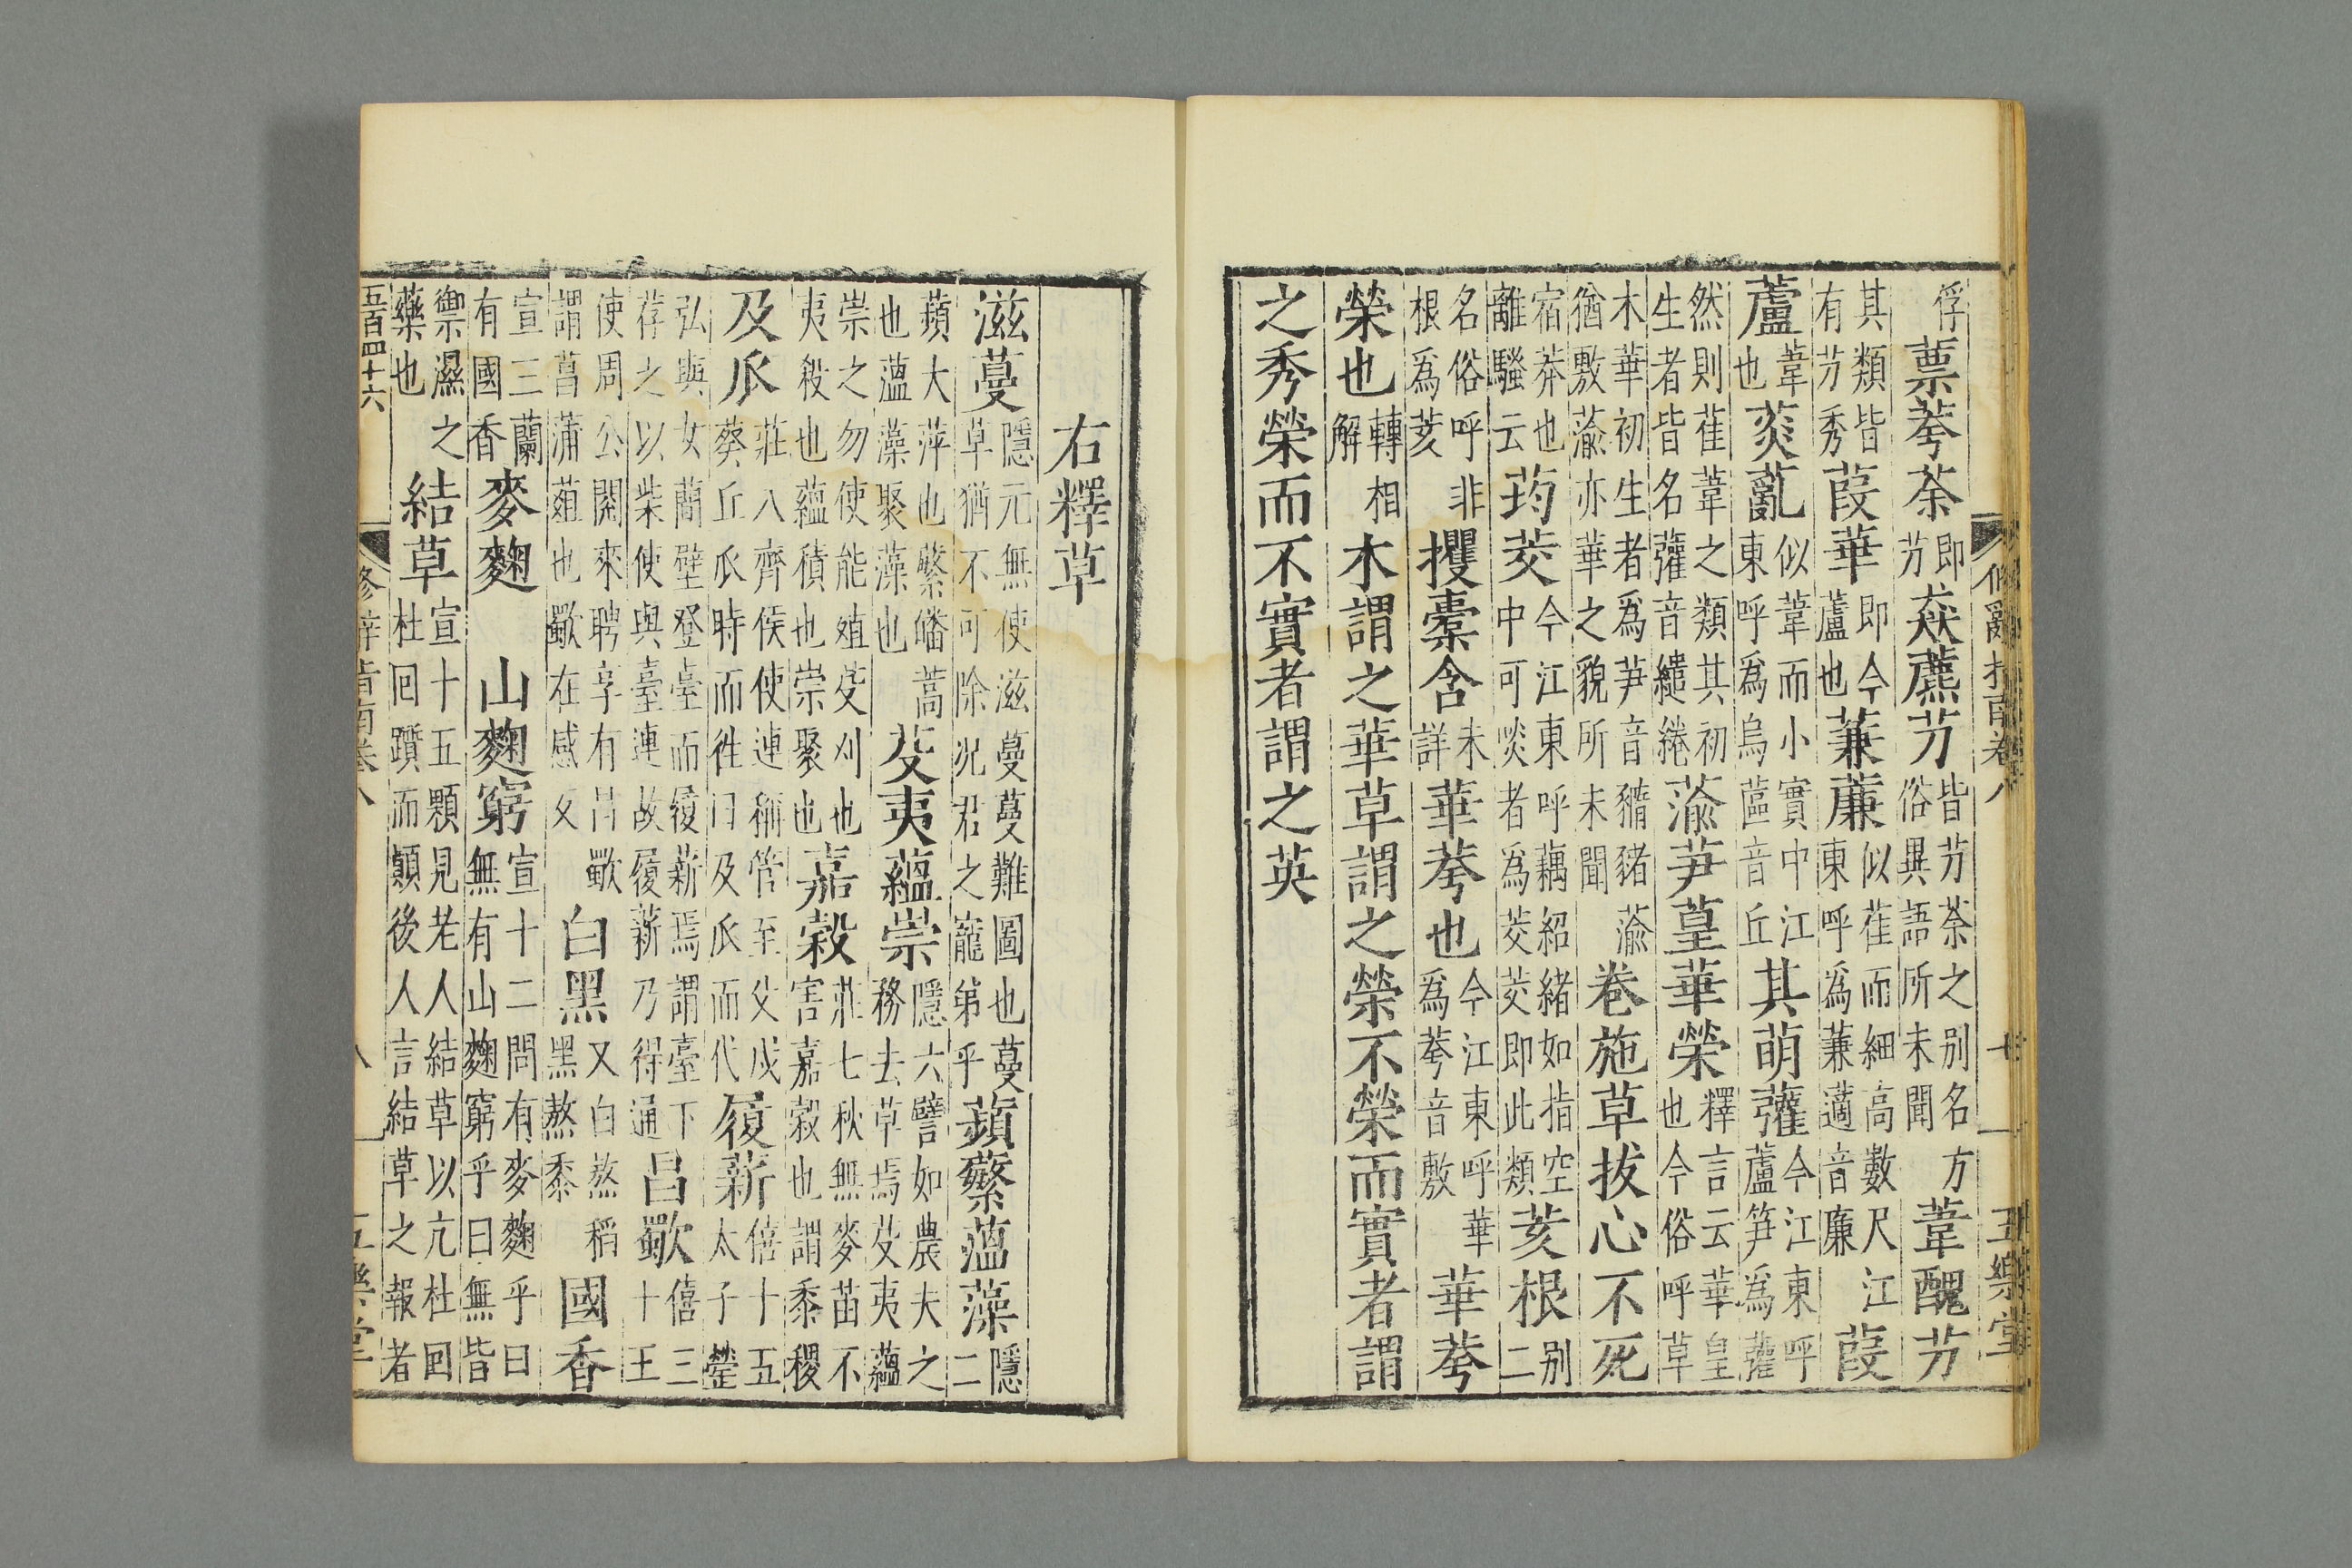 修辭指南卷八 七 五樂堂
俘蔈荂荼即芀猋藨芀皆芀荼之别名方俗異語所未聞葦醜芀
其類皆有芀秀葭華即今蘆也蒹薕似萑而細高數尺江東呼爲蒹藡音廉葭
蘆葦也菼薍似葦而小實中江東呼爲烏蓲音丘其萌虇今江東呼蘆笋爲虇
然則萑葦之類其初生者皆名虇音繾綣蕍芛葟華榮釋言云華皇也今俗呼草
木華初生者爲芛音䝐豬蕍猶敷蕍亦華之貌所未聞卷施草拔心不死
宿莽也離騷云荺茭今江東呼藕紹緒如指空中可啖者爲茭茭即此類荄根别二
名俗呼非根爲荄攫槖含未詳華荂也今江東呼華爲荂音敷華荂
榮也轉相解木謂之華草謂之榮不榮而實者謂
之秀榮而不實者謂之英
右釋草
滋蔓隱元無使滋蔓蔓難圖也蔓草猶不可除況君之寵弟乎蘋蘩薀藻隱二
蘋大萍也蘩皤蒿也薀藻聚藻也芟夷蘊崇隱六譬如農夫之務去草焉芟夷蘊
崇之勿使能殖芟刈也夷殺也蘊積也崇聚也嘉穀莊七秋無麥苗不害嘉穀也謂黍稷
及瓜莊八齊侯使連稱管至父戍葵丘瓜時而徃曰及瓜而代履薪僖十五太子罃
弘與女簡壁登臺而履薪焉謂臺下荐之以柴使與臺連故履薪乃得通昌歜僖三十王
使周公閱來聘享有昌歜謂菖蒲葅也歜在感反白黑又白熬稻黑熬黍國香
宣三蘭有國香麥麴 山麴窮宣十二問有麥麴乎曰無有山麴窮乎曰無皆
禦濕之藥也結草宣十五顆見老人結草以亢杜回杜回躓而顛後人言結草之報者
五百四十六 修辭指南卷八 八 五樂堂